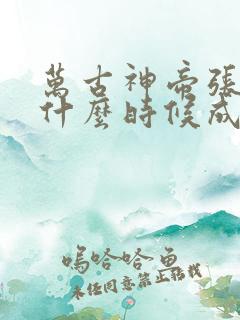 萬古神帝張
什麼時候成
嗚哈哈魚
未任同意禁止轉載